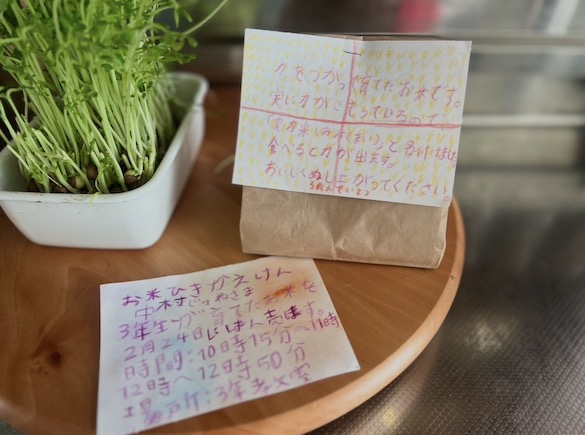 力をつかって育てたお米です。
実に力がこもっているので、
食べると力が出ます。
おいしくめし上がってください。
3ねんせいより
お米ひきかえけん
中村じつねさま
3年生が育てたお米を
2月24日にはん売します。
時間:10時15分〜11時
12時〜12時50分
場戸斤:3年 教室